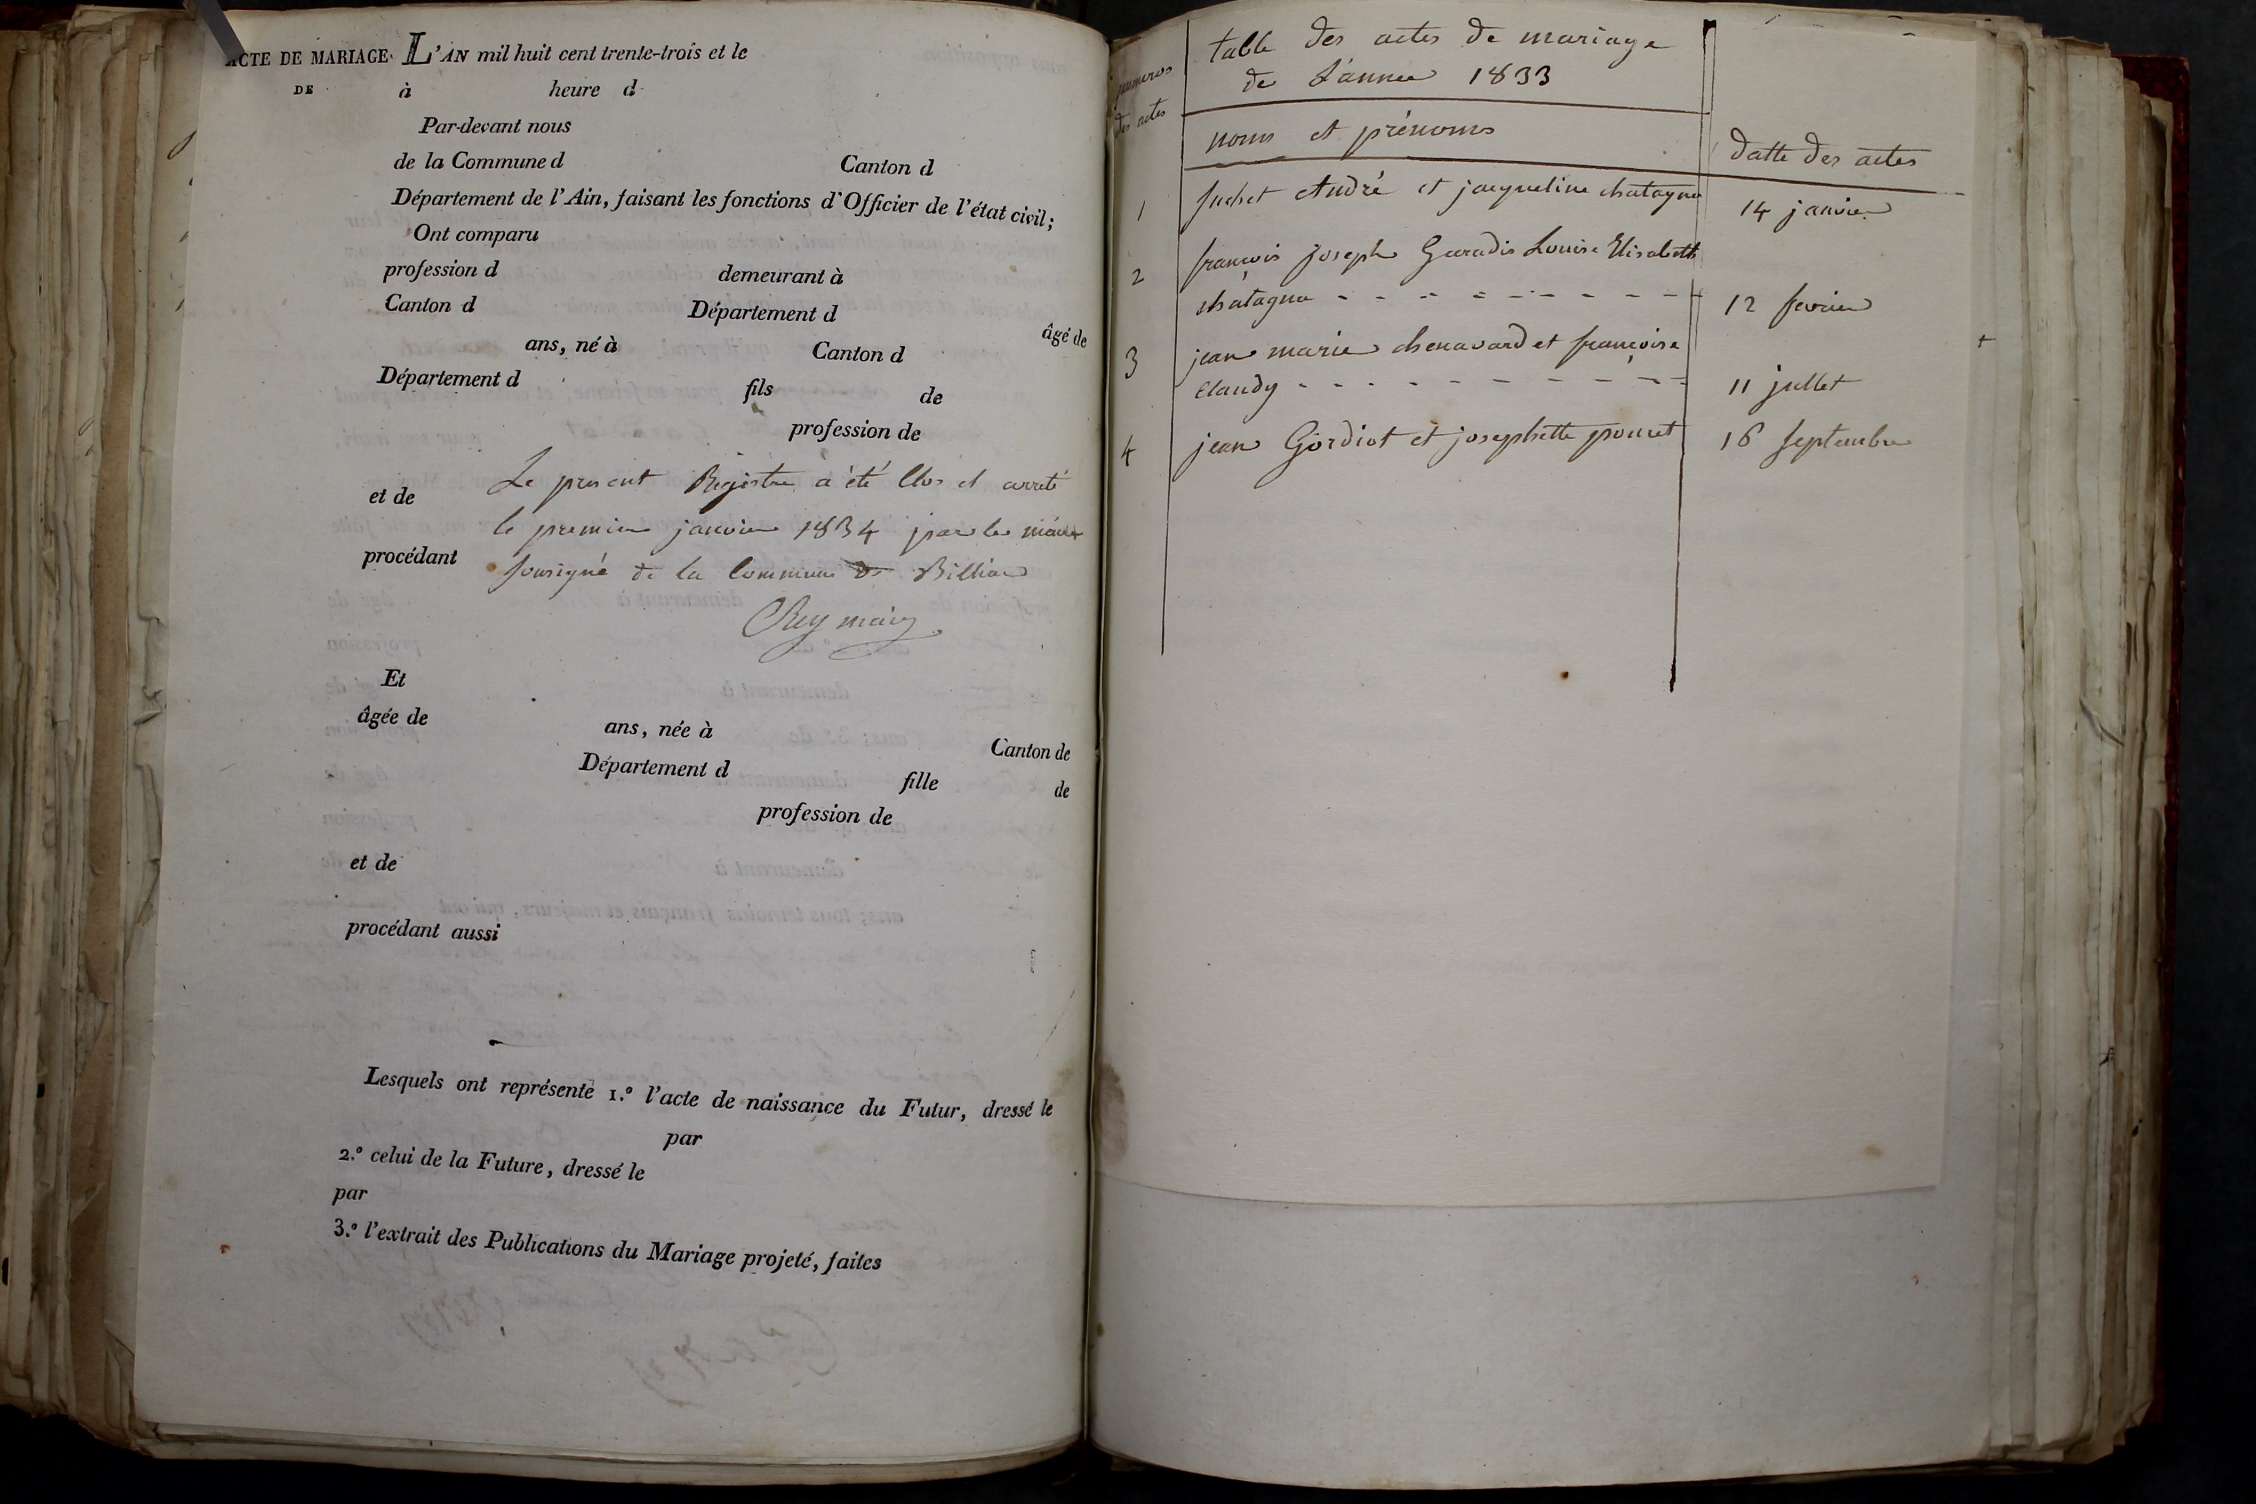 ACTE DE MARIAGE. L'AN mil huit cent trente-trois et le
DE à heure d
Par-devant nous
de la Commune d Canton d
Département de l'Ain, faisant les fonctions d'Officier de l'état civil;
Ont comparu
profession d demeurant à
Canton d Département d âgé de
ans, né à Canton d
Département d fils de
profession de
et de
Le present Registre a été Clos et arreté
le premier janvier 1834 par le maire
procédant
sousigné de la Commune de Billiat
Rey maire
Et
âgée de ans, née à Canton de
Département d fille de
profession de
et de
procédant aussi
Lesquels ont représenté 1.º l'acte de naissance du Futur, dressé le
par
2.º celui de la Future, dressé le
par
3.º l'extrait des Publications du Mariage projeté, faites
numeros des actes
table des actes de mariage
de L'année 1833
noms et prénoms datte des actes
1 suchet André et jacqueline chatagna 14 janvier
2 françois joseph Louise Elisabeth
chatagna - - - - - - - - - - 12 fevrier
3 jean marie chenavard et françoise
Claudy - - - - - - - - - - 11 jullet
4 jean Gordiot et josephette poncet 16 septembre